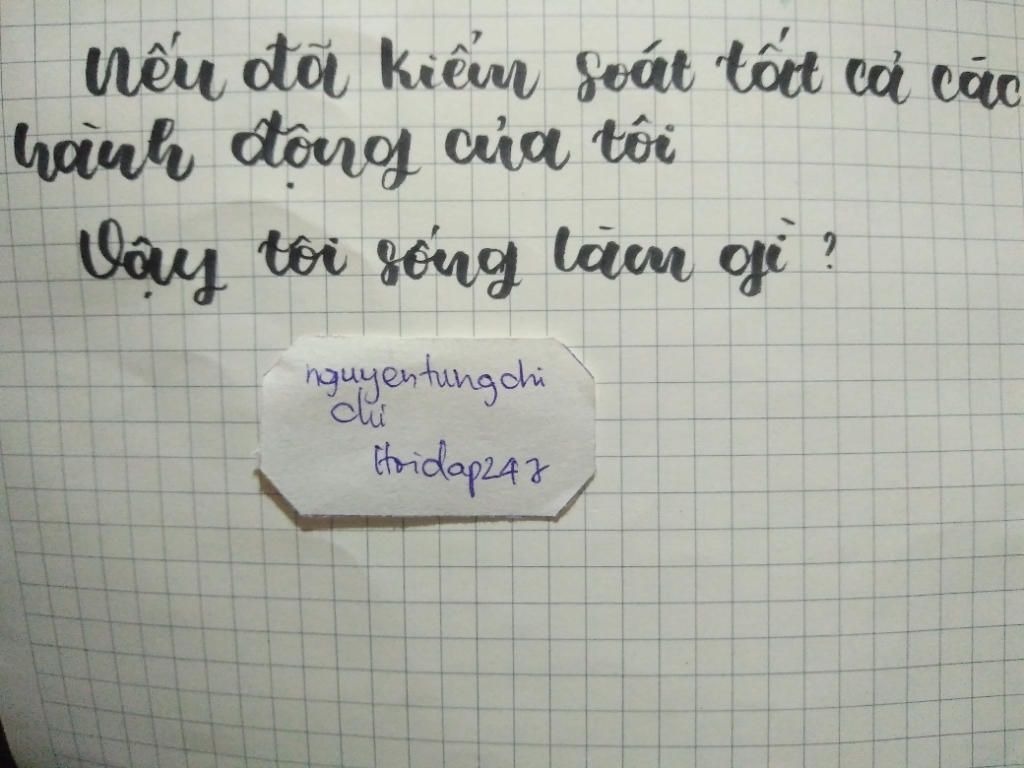 Nếu đã kiểm soát tất cả các
hành động của tôi
Vậy tôi sống làm gì ?
nguyentungchi
chi
Hoidap247